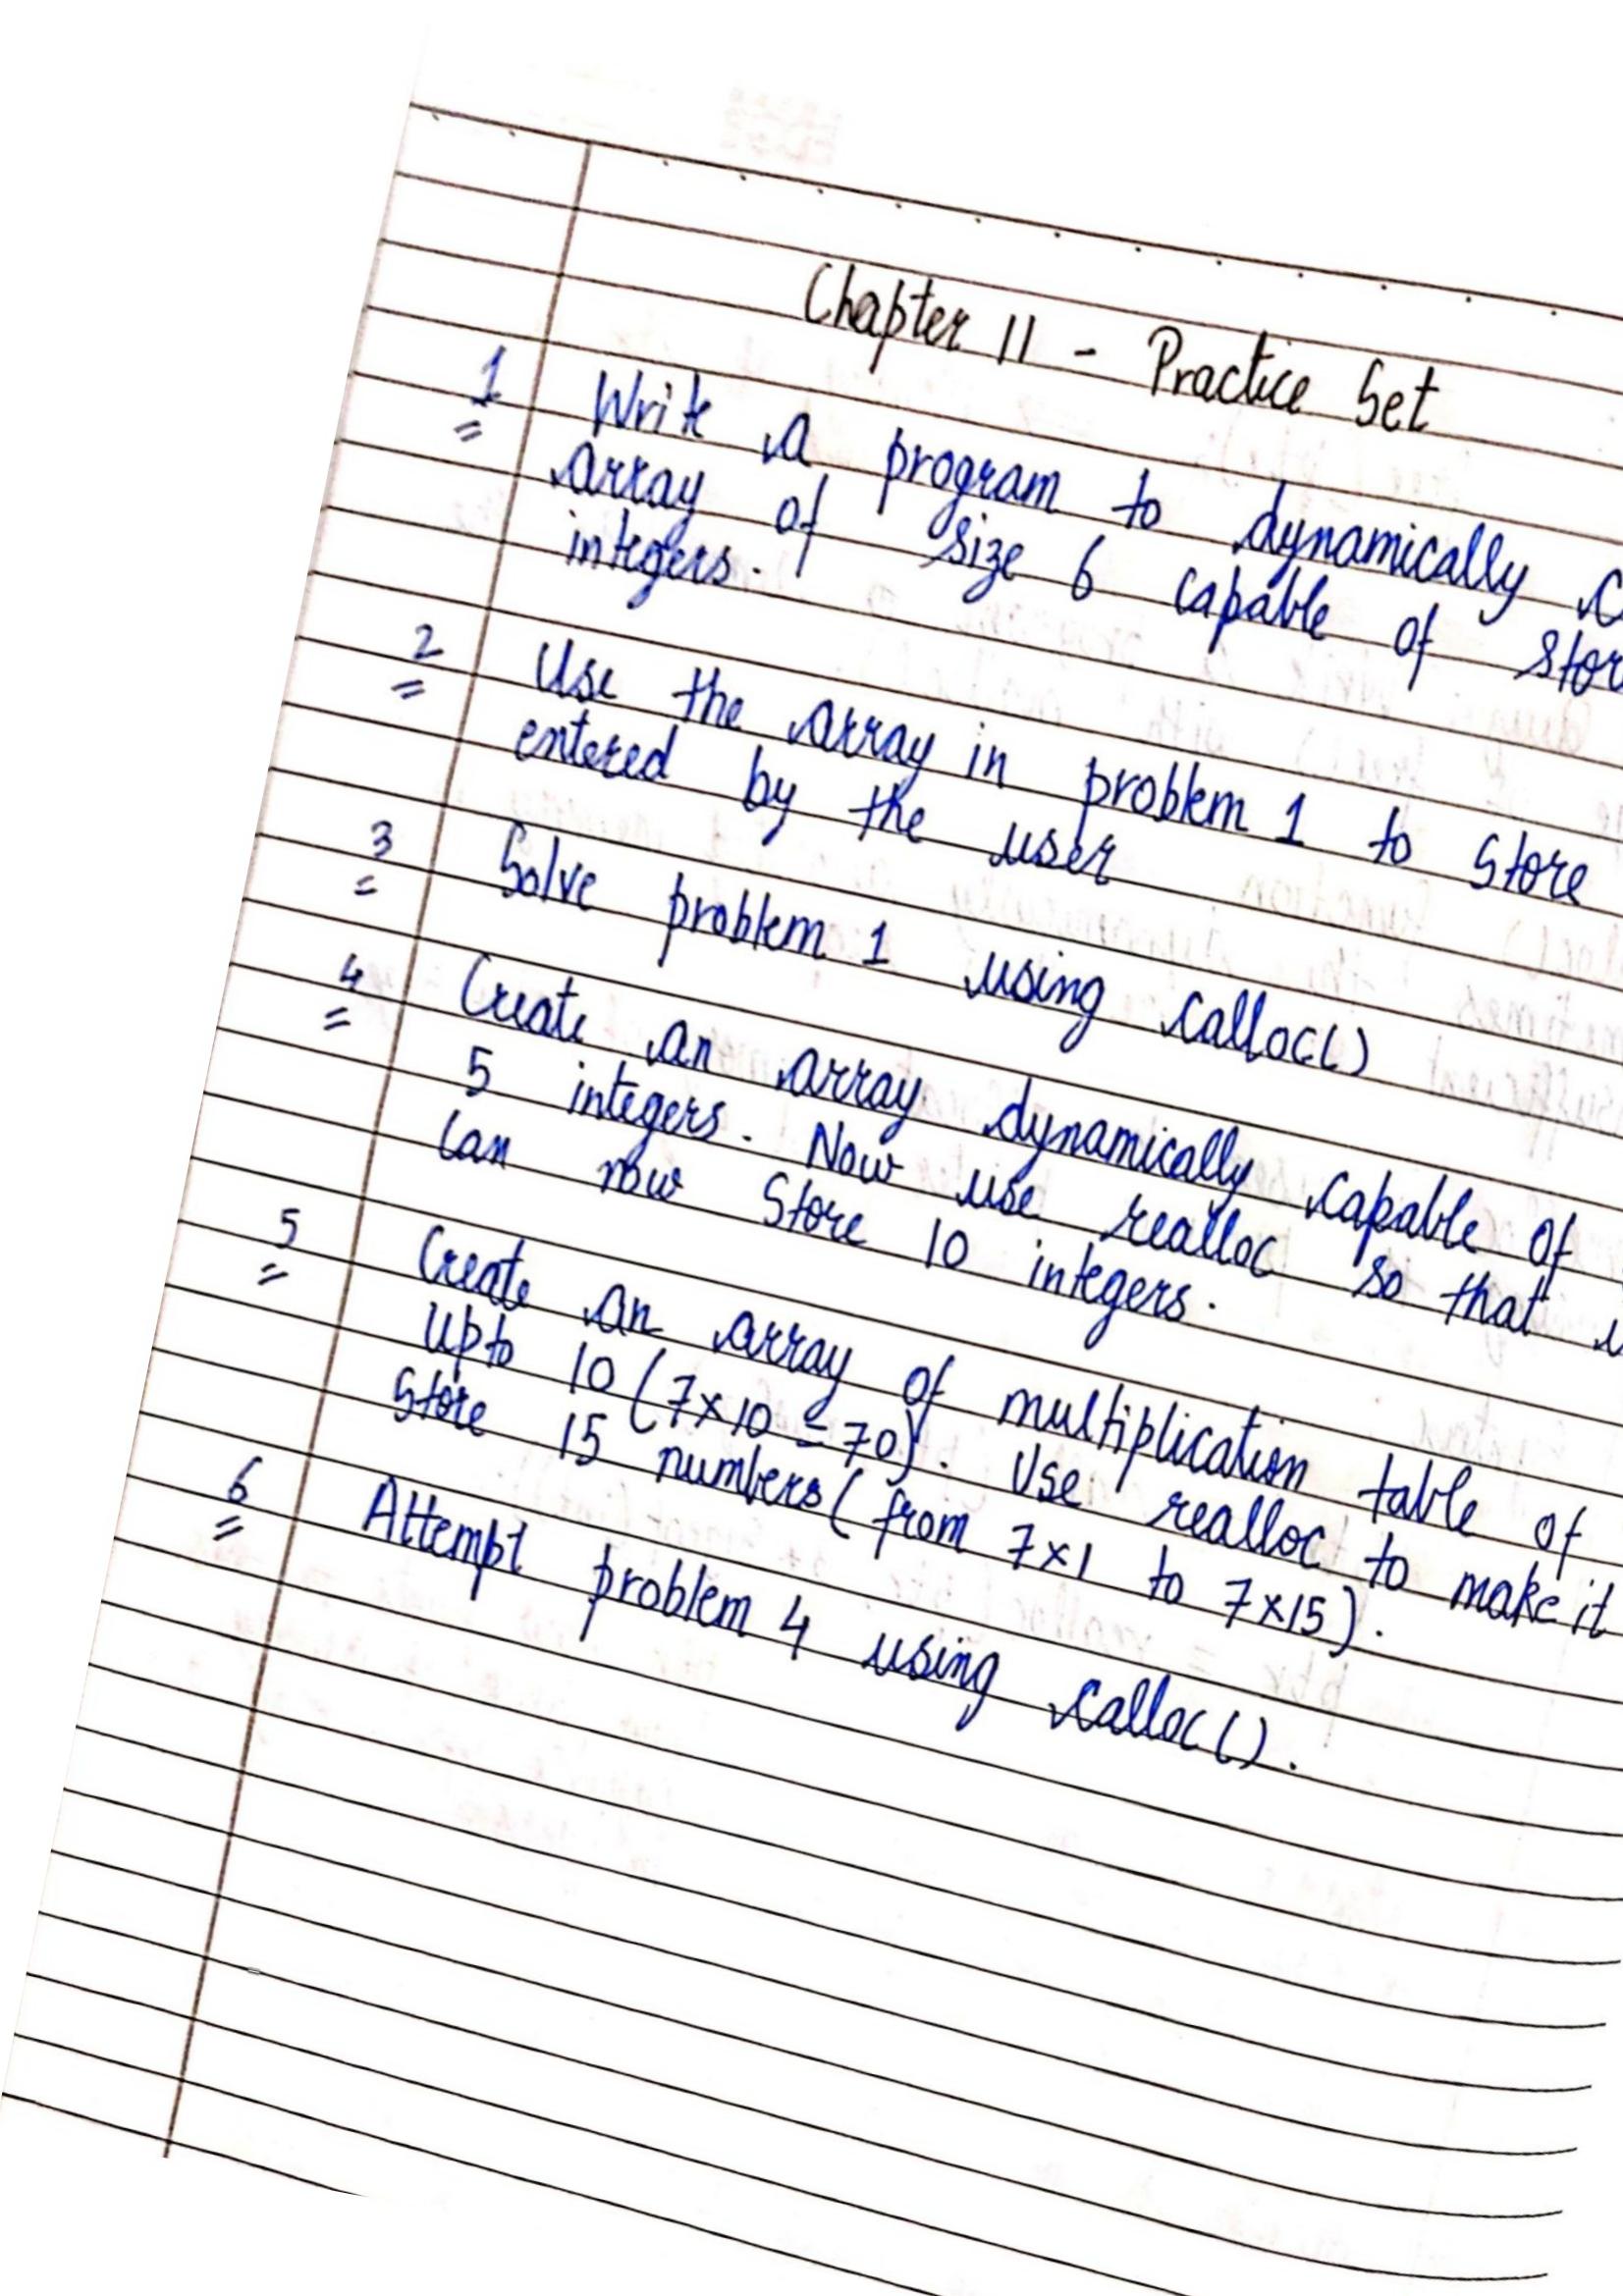 Chapter 11 - Practice Set
1 Write a program to dynamically
array of size 6 capable of
integers.
2 Use the array in problem 1 to Store
entered by the user
3 Solve problem 1 using calloc()
4 Create an array dynamically capable of
5 integers. Now use realloc so that
can now Store 10 integers.
5 Create an array of multiplication table of
Upto 10 (7×10 = 70). Use realloc to make it
Store 15 numbers (from 7×1 to 7×15).
6 Attempt problem 4 using calloc().